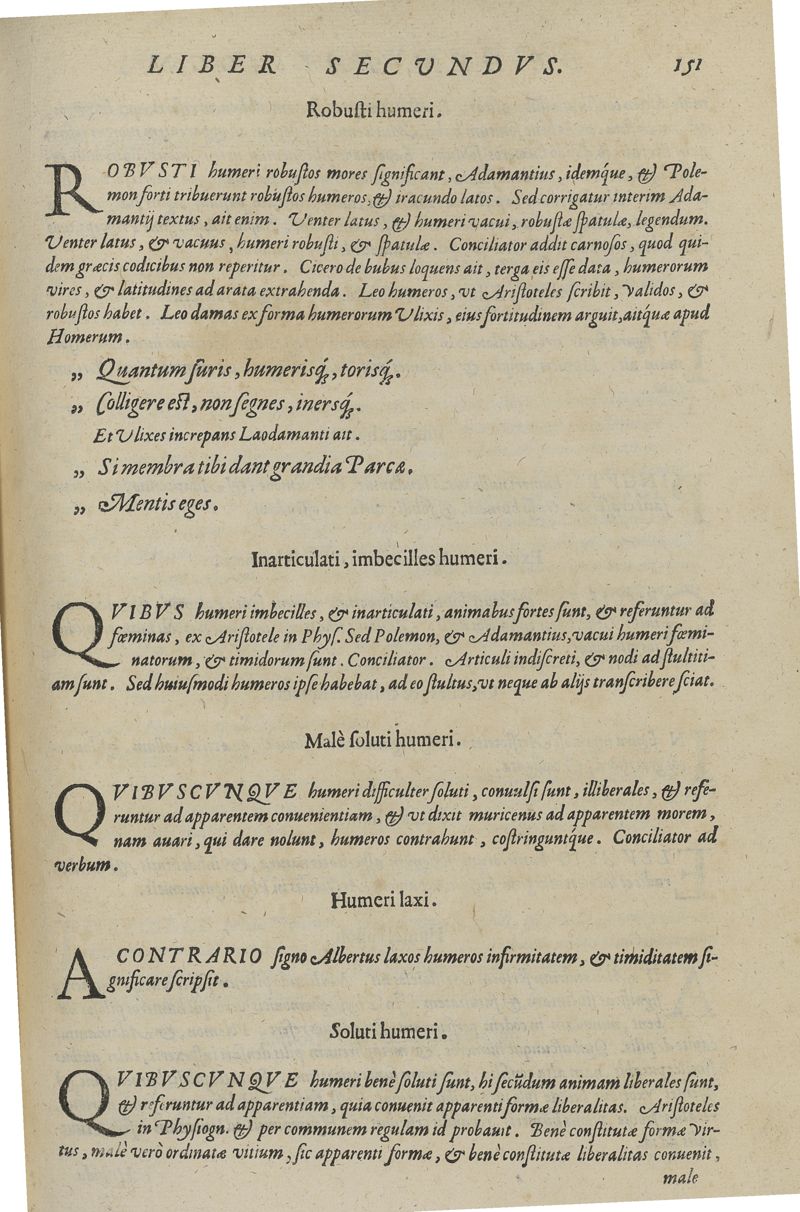 LIBER SECVNDVS. 151
Robuſti humeri.
ROBVSTI humeri robuſtos mores ſignificant, Adamantius, idemq́ue, & Pole-
mon forti tribuerunt robuſtos humeros, & iracundo latos. Sed corrigatur interim Ada-
mantij textus, ait enim. Venter latus, & humeri vacui, robuſtæ ſpatulæ, legendum.
Venter latus, & vacuus, humeri robuſti, & ſpatulæ. Conciliator addit carnoſos, quod qui-
dem græcis codicibus non reperitur. Cicero de bubus loquens ait, terga eis eſſe data, humerorum
vires, & latitudines ad arata extrahenda. Leo humeros, vt Ariſtoteles ſcribit, validos, &
robuſtos habet. Leo damas ex forma humerorum Vlixis, eius fortitudinem arguit, aitq́ue apud
Homerum.
„ Quantum ſuris, humerisq́;, torisq́;.
„ Colligere eſt, non ſegnes, inersq́;.
Et Vlixes increpans Laodamanti ait.
„ Si membra tibi dant grandia Parcæ.
„ Mentis eges.
Inarticulati, imbecilles humeri.
QVIBVS humeri imbecilles, & inarticulati, animabus fortes ſunt, & referuntur ad
fœminas, ex Ariſtotele in Phyſ. Sed Polemon, & Adamantius, vacui humeri fœmi-
natorum, & timidorum ſunt. Conciliator. Articuli indiſcreti, & nodi ad ſtultiti-
am ſunt. Sed huiuſmodi humeros ipſe habebat, ad eo ſtultus, vt neque ab alijs tranſcribere ſciat.
Malè ſoluti humeri.
QVIBVSCVNQVE humeri difficulter ſoluti, conuulſi ſunt, illiberales, & refe-
runtur ad apparentem conuenientiam, & vt dixit muricenus ad apparentem morem,
nam auari, qui dare nolunt, humeros contrahunt, coſtringuntq́ue. Conciliator ad
verbum.
Humeri laxi.
A CONTRARIO ſigno Albertus laxos humeros infirmitatem, & timiditatem ſi-
gnificare ſcripſit.
Soluti humeri.
QVIBVSCVNQVE humeri benè ſoluti ſunt, hi ſecūdum animam liberales ſunt,
& referuntur ad apparentiam, quia conuenit apparenti formæ liberalitas. Ariſtoteles
in Phyſiogn. & per communem regulam id probauit. Benè conſtitutæ formæ vir-
tus, malè verò ordinatæ vitium, ſic apparenti formæ, & benè conſtitutæ liberalitas conuenit,
male